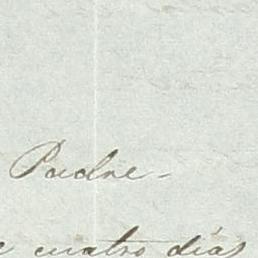 Padre -
e cuatro días